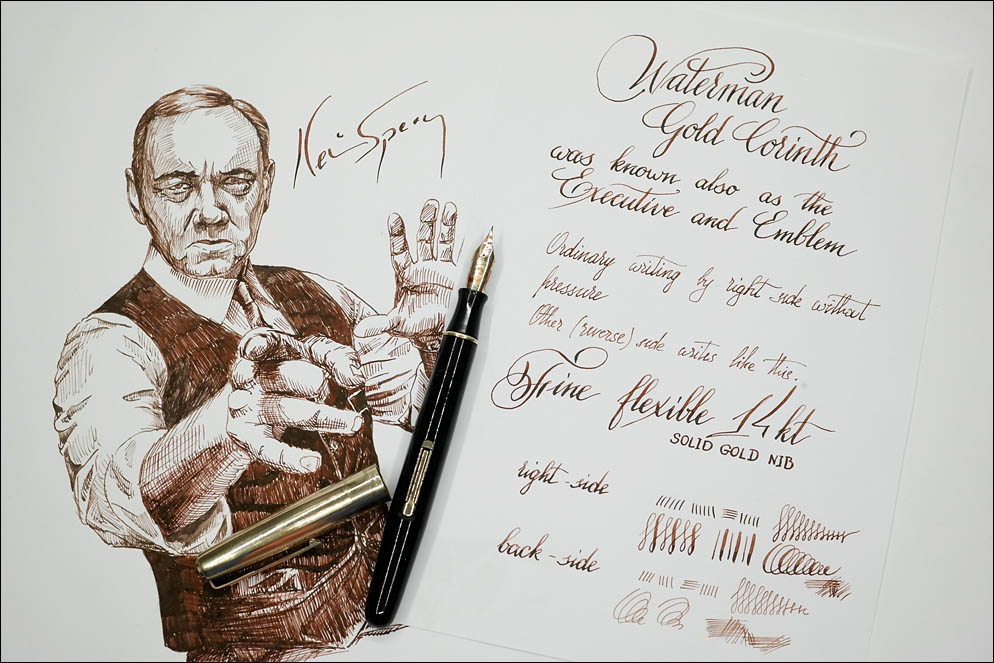 Kevin Spacey
Waterman
Gold Corinth
was known also as the
Executive and Emblem
Ordinary writing by right side without
pressure
Other (reverse) side writes like this.
Fine flexible 14 kt
SOLID GOLD NIB
right-side
back-side